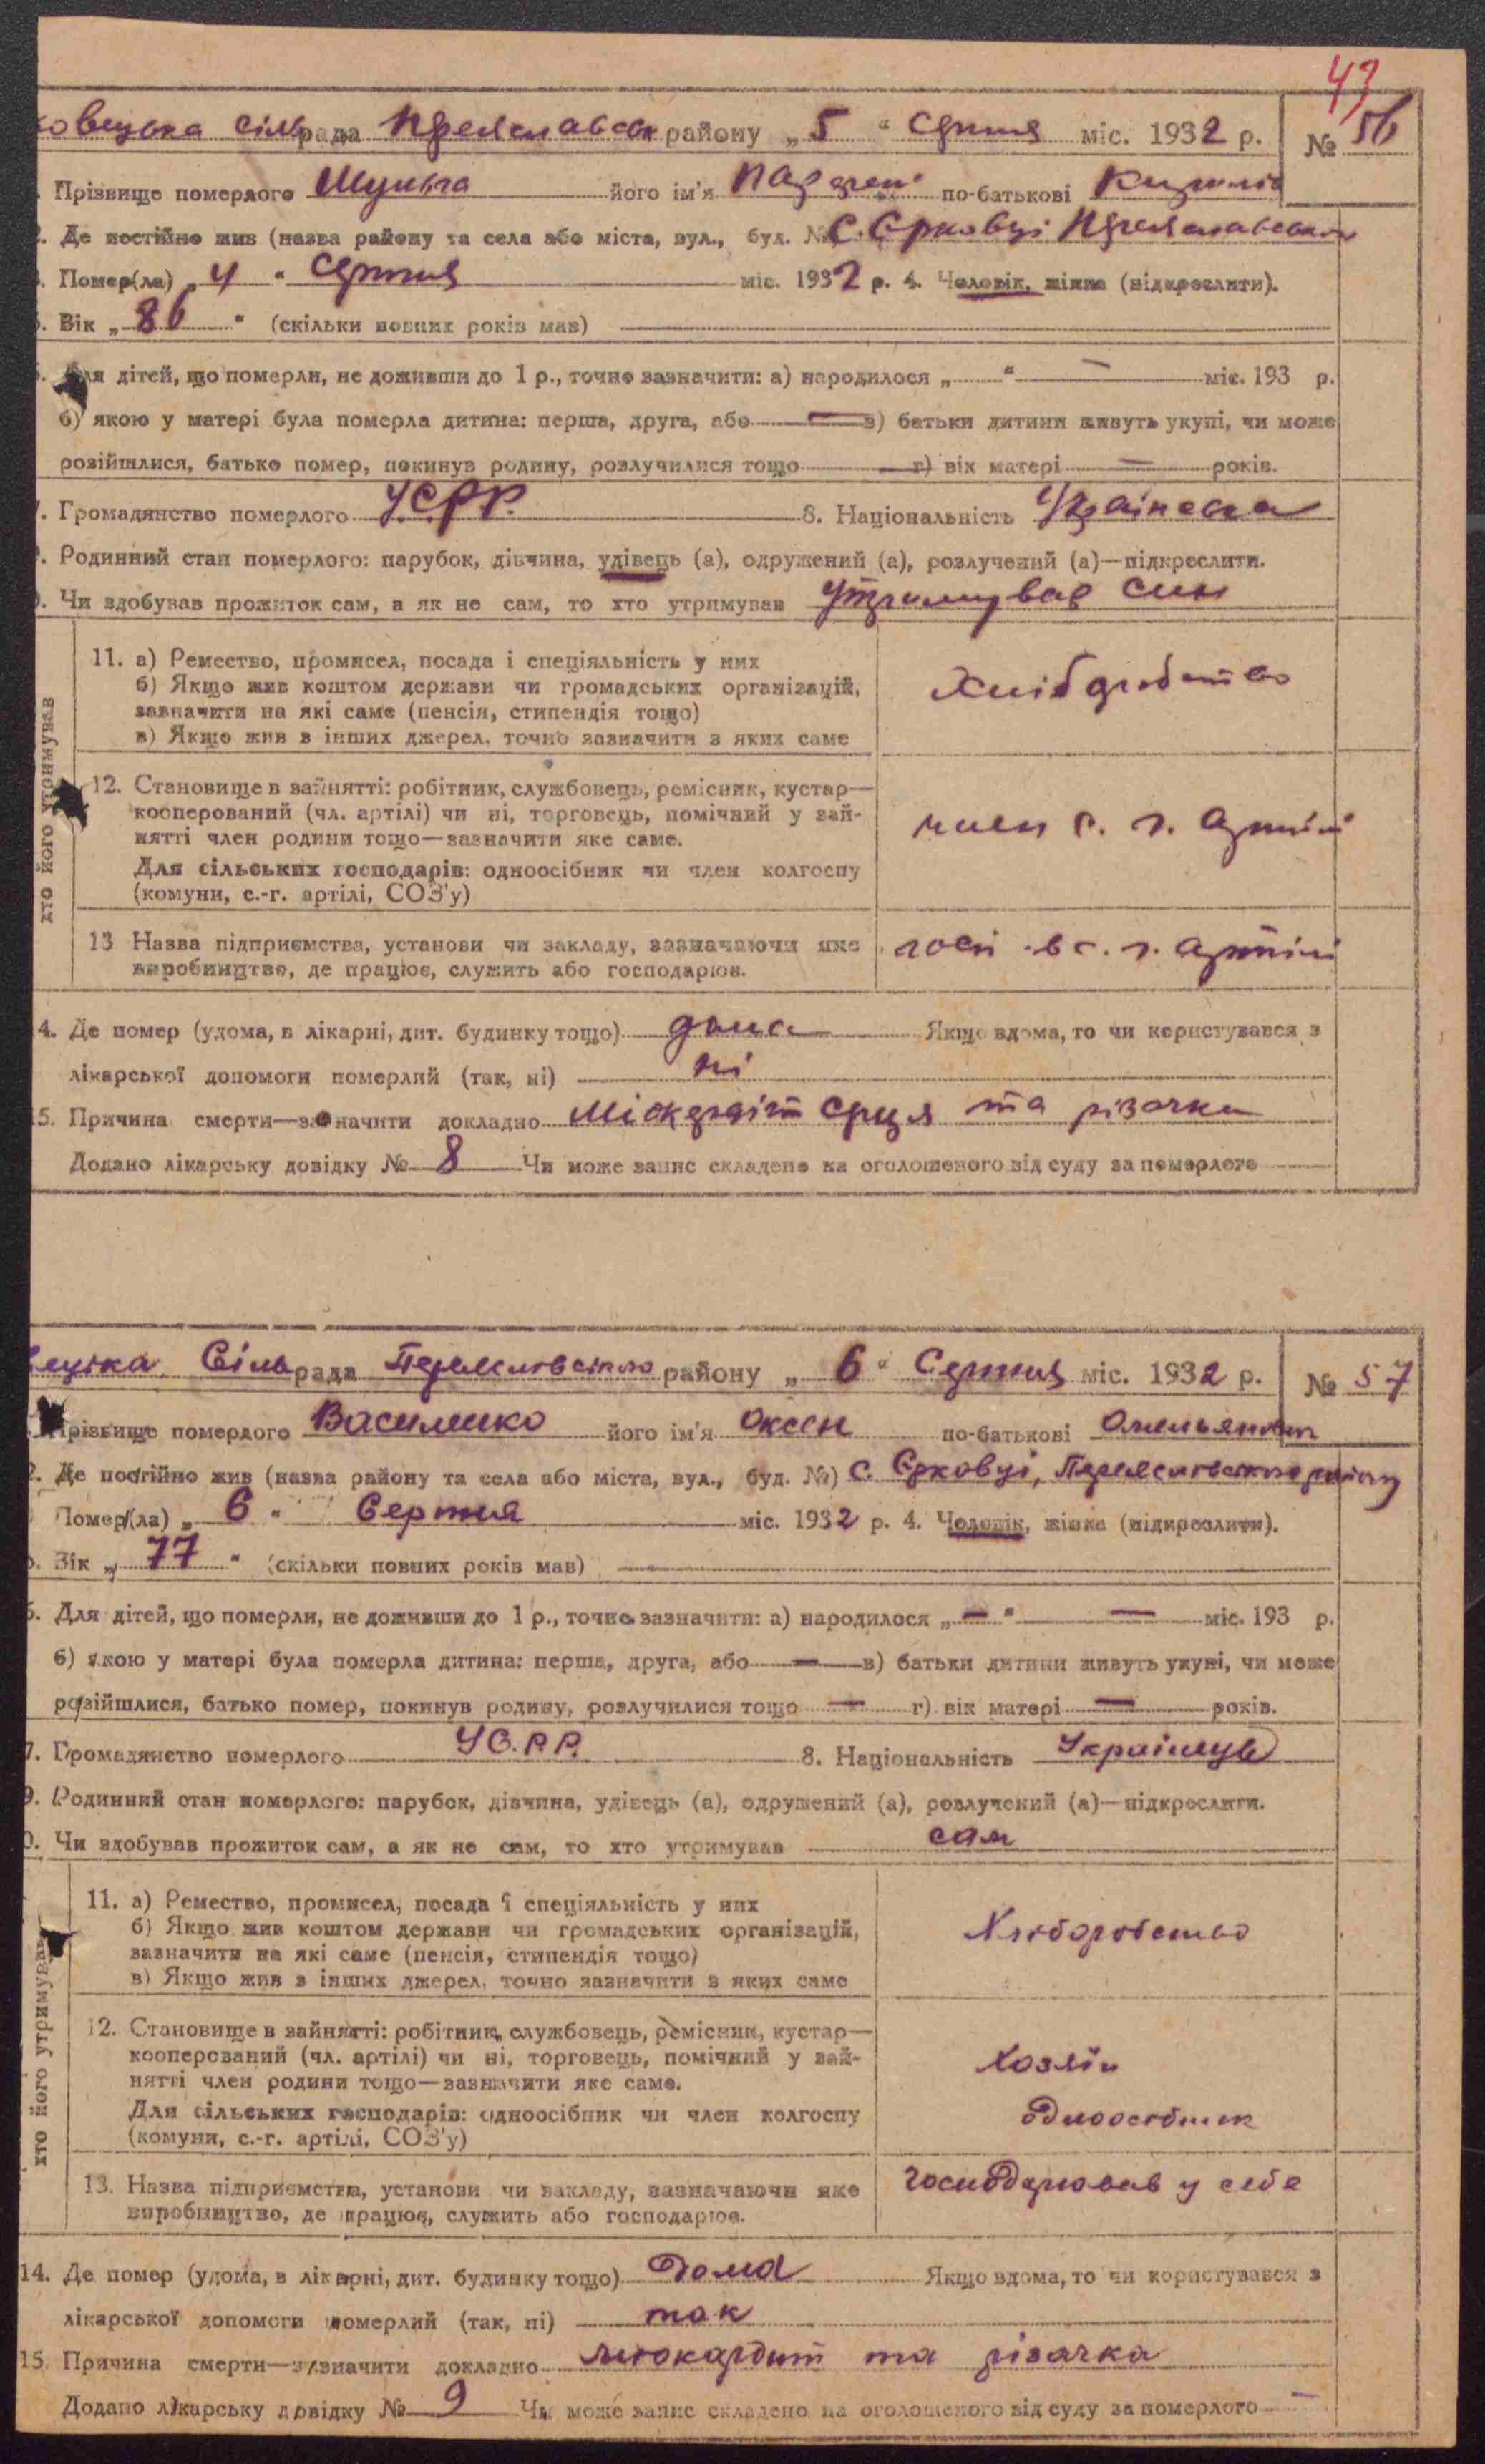 43
ковецька сільрада Переяславськ району „5“ серпня міс. 1932 р. № 56
Прізвище померлого Шульга його ім'я по-батькові
2. Де постійно жив (назва району та села або міста, вул., буд. №) с. Єрковці Переяславськ
3. Помер(ла) „4“ серпня міс. 1932 р. 4. Чоловік, жінка (підкреслити).
5. Вік „86“ (скільки повних років мав)
6. Для дітей, що померли, не доживши до 1 р., точно зазначити: а) народилося „ “ — міс. 193 р.
б) якою у матері була померла дитина: перша, друга, або — в) батьки дитини живуть укупі, чи може
розійшлися, батько помер, покинув родину, розлучилися тощо — г) вік матері — років.
7. Громадянство померлого У.С.Р.Р. 8. Національність Українська
9. Родинний стан померлого: парубок, дівчина, удівець (а), одружений (а), розлучений (а)—підкреслити.
0. Чи здобував прожиток сам, а як не сам, то хто утримував утримував син
хто його утримував
11. а) Ремество, промисел, посада і спеціяльність у них
б) Якщо жив коштом держави чи громадських організацій,
зазначити на які саме (пенсія, стипендія тощо)
в) Якщо жив з інших джерел, точно зазначити з яких саме
Хліборобство
12. Становище в зайнятті: робітник, службовець, ремісник, кустар—
кооперований (чл. артілі) чи ні, торговець, помічний у зай-
нятті член родини тощо—зазначити яке саме.
Для сільських господарів: одноосібник чи член колгоспу
(комуни, с.-г. артілі, СОЗ'у)
член с. г. артілі
13 Назва підприємства, установи чи закладу, зазначаючи яке
виробництво, де працює, служить або господарює.
госп в с. г. артілі
4. Де помер (удома, в лікарні, дит. будинку тощо) дома Якщо вдома, то чи користувався з
лікарської допомоги померлий (так, ні) ні
15. Причина смерти—зазначити докладно Міокардіт серця та різачка
Додано лікарську довідку № 8 Чи може запис складено на оголошеного від суду за померлого
ецька Сільрада Переяславського району „6“ Серпня міс. 1932 р. № 57
Прізвище померлого Василишко його ім'я Оксен по-батькові Омельянович
2. Де постійно жив (назва району та села або міста, вул., буд. №) с. Єрковці, Переяславського району
Помер(ла) „6“ Серпня міс. 1932 р. 4. Чоловік, жінка (підкреслити).
5. Вік „77“ (скільки повних років мав)
6. Для дітей, що померли, не доживши до 1 р., точно зазначити: а) народилося „—“ — міс. 193 р.
б) якою у матері була померла дитина: перша, друга, або — в) батьки дитини живуть укупі, чи може
розійшлися, батько помер, покинув родину, розлучилися тощо — г) вік матері — років.
7. Громадянство померлого У.С.Р.Р. 8. Національність Українець
9. Родинний стан померлого: парубок, дівчина, удівець (а), одружений (а), розлучений (а)—підкреслити.
0. Чи здобував прожиток сам, а як не сам, то хто утримував сам
хто його утримував
11. а) Ремество, промисел, посада і спеціяльність у них
б) Якщо жив коштом держави чи громадських організацій,
зазначити на які саме (пенсія, стипендія тощо)
в) Якщо жив з інших джерел, точно зазначити з яких саме
Хліборобство
12. Становище в зайнятті: робітник, службовець, ремісник, кустар—
кооперований (чл. артілі) чи ні, торговець, помічний у зай-
нятті член родини тощо—зазначити яке саме.
Для сільських господарів: одноосібник чи член колгоспу
(комуни, с.-г. артілі, СОЗ'у)
хозяїн
одноосібник
13. Назва підприємства, установи чи закладу, зазначаючи яке
виробництво, де працює, служить або господарює.
господарював у себе
14. Де помер (удома, в лікарні, дит. будинку тощо) Дома Якщо вдома, то чи користувався з
лікарської допомоги померлий (так, ні) так
15. Причина смерти—зазначити докладно міокардит та різачка
Додано лікарську довідку № 9 Чи може запис складено на оголошеного від суду за померлого —